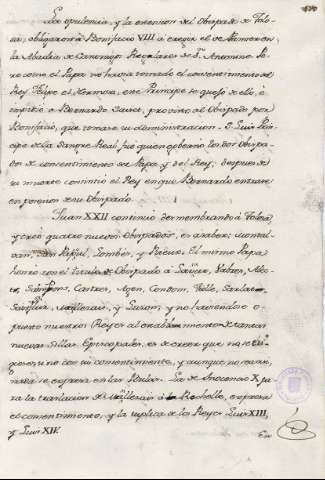 La opulencia, y la extension del Obispado de Tolo-
sa, obligaron à Bonifacio VIII à erigir el de Pamiers en
la Abadia de Canonigos Reglares de Sn. Antonino. Pe-
ro como el Papa no havia tomado el consentimiento del
Rey Felipe el Hermoso, este Principe se quejo de ello, è
impidió a Bernardo Saiset, provisto al Obispado por
Bonifacio, que tomase su administracion. Sn. Luis Prin-
cipe de la Sangre Real fué quien goberno los dos Obispa-
dos de consentimiento del Papa y del Rey; despues de
su muerte consintió el Rey en que Bernardo entrase
en posesion de su Obispado.
Juan XXII continuó desmembrando à Tolosa
y creó quatro nuevos Obispados, es à saber; Montal-
van, San Papul, Lombes, y Rieux. El mismo Papa
honró con el titulo de Obispado à
Condom,
Sarlat, y no haviendose o-
puesto nuestros Reyes al establecimiento de tantas
nuevas Sillas Episcopales, es de creer que no se eri-
giesen, si no con su consentimiento, y aunque no es ne-
se expresa en las Bulas. La de Inocencio X pa-
ra la translacion de Maillezais à la Rochelle, expresa
el consentimiento, y la suplica de los Reyes Luis XIII,
y Luis XIV.
En